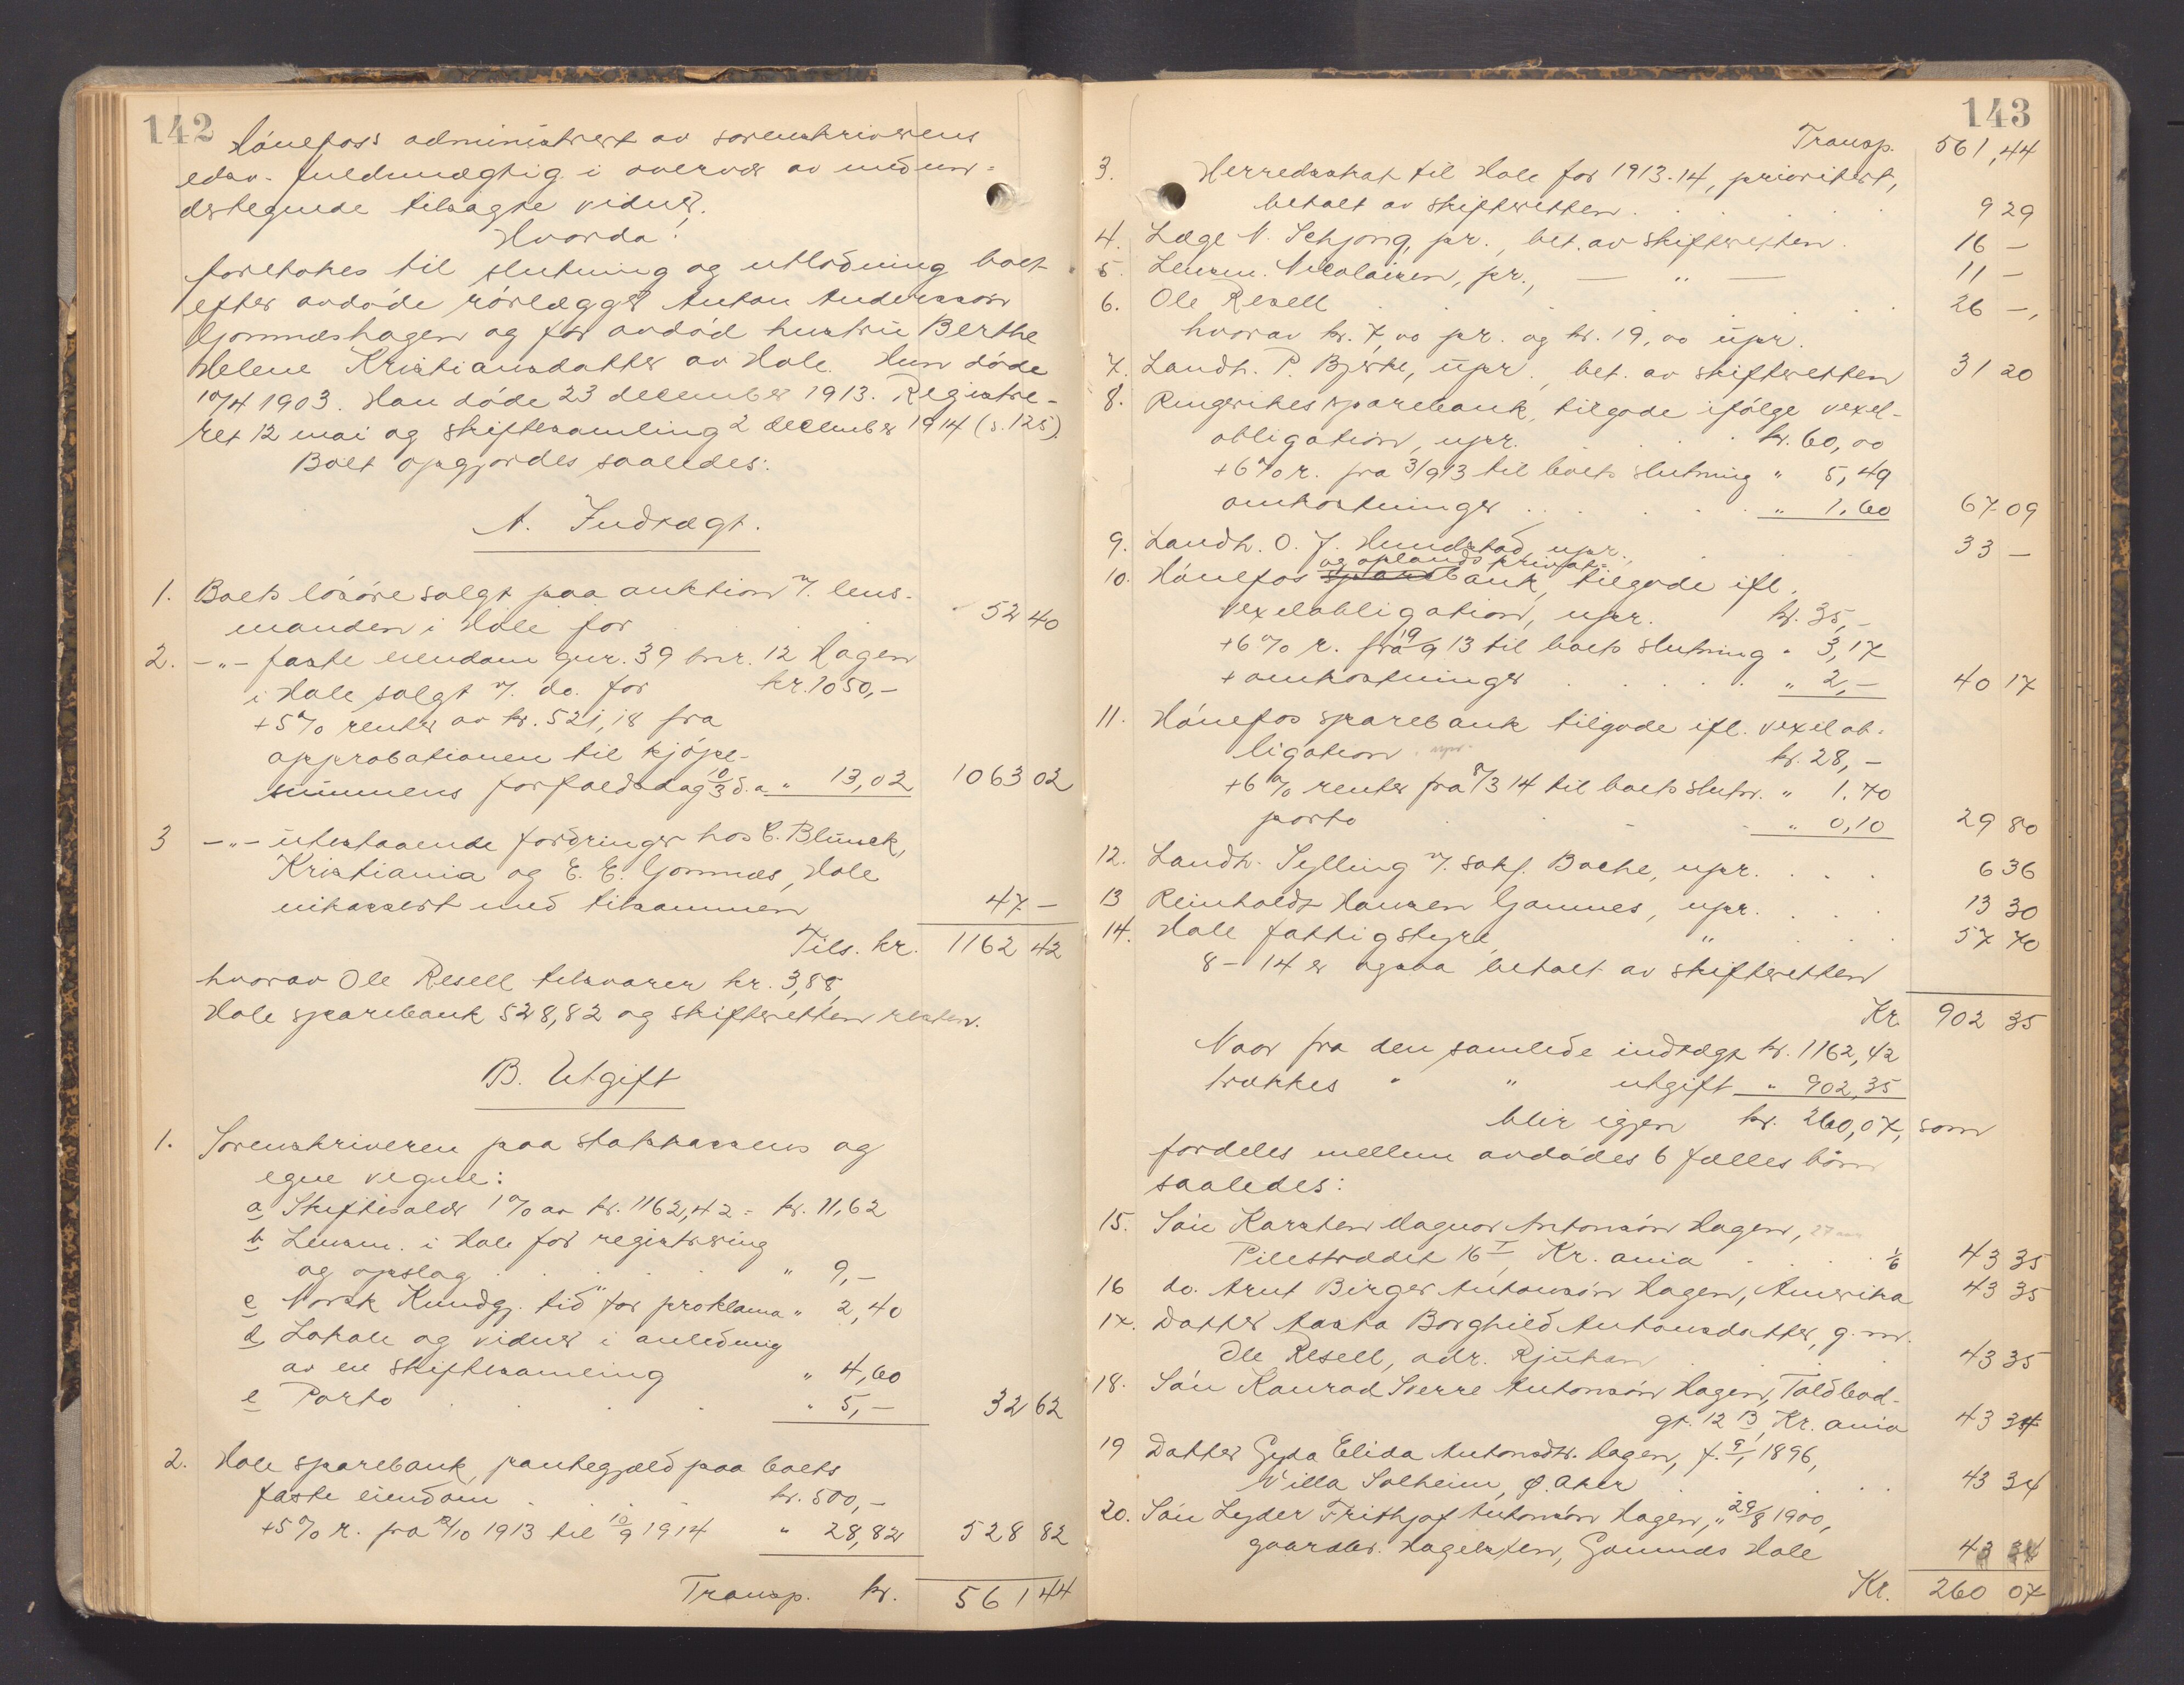 142
Hønefoss administrert av sorenskriverens
edsv. fuldmægtig i overvær av medun-
dertegnede tilsagte vidner.
Hvorda:
foretokes til slutning og utlodning boet
efter avdøde rørlægger Anton Anderssøn
Gomnæshagen og før avdød hustru Berthe
Helene Kristiansdatter av Hole. Hun døde
10/4 1903. Han døde 23 december 1913. Registre-
ret 12 mai og skiftesamling 2 december 1914 (s. 125).
Boet opgjordes saaledes:
A. Indtægt.
1. Boets løsøre solgt paa auktion v/. lens-
manden i Hole for . . . 52 40
2. -"- faste eiendom gnr. 39 bnr. 12 Hagen
i Hole solgt v/. do. for kr. 1050,-
+5% renter av kr. 521,18 fra
approbationen til kjøpe-
summens forfaldsdag 10/3 d.a. " 13,02 1063 02
3 -"- utestaaende fordringer hos C. Blunck,
Kristiania og E. E. Gomnæs, Hole
inkassert med tilsammen 47 -
Tils. kr. 1162 42
hvorav Ole Resell tilsvarer kr. 3,88,
Hole sparebank 528,82 og skifteretten resten.
B. Utgift
1. Sorenskriveren paa statskassens og
egne vegne:
a, Skiftesalær 1% av kr. 1162,42 = kr. 11,62
b, Lensm. i Hole for registrering
og opslag . . . . . " 9,-
c, Norsk Kundgj. tid" for proklama " 2,40
d, Lokale og vidner i anledning
av en skiftesamling " 4,60
e Porto . . . " 5,- 32 62
2. Hole sparebank, pantegjæld paa boets
faste eiendom . . . kr. 500,-
+5% r. fra /10 1913 til 10/9 1914 " 28,82 528 82
Transp. kr. 561 44
143
Transp. 561,44
3. Herredsskat til Hole for 1913-14, prioritert,
betalt av skifteretten . . . . . 9 29
4. Læge N. Schjong, pr., bet. av skifteretten . 16 -
5. Lensm. Nicolaisen, pr., — " — 11 -
6. Ole Resell . . . . . . 26 -,
hvorav kr. 7,00 pr. og kr. 19,00 upr.
7. Landh. P. Bjerke, upr., bet. av skifteretten 31 20
8. Ringerikes sparebank, tilgode ifølge vexel-
obligation, upr. . . . . kr. 60,00
+6% r. fra 3/9 13 til boets slutning " 5,49
omkostninger . . . . . " 1,60 67 09
9. Landh. O. J. Hundstad, upr. . . . 33 -
og oplands privat-
10. Hønefos sparebank, tilgode ifl.
vexelobligation, upr. kr. 35,-
+6% r. fra 19/9 13 til boets slutning " 3,17
+ omkostninger . . . . . " 2,- 40 17
11. Hønefos sparebank tilgode ifl. vexelob-
ligation. upr. kr. 28,-
+6% renter fra /3 14 til boets slutn. " 1.70
porto . . . " 0,10 29 80
12. Landh. Sylling v/. sakf. Bache, upr. . . . 6 36
13 Reinholdt Hansen Gomnes, upr. . . . 13 30
14. Hole fattigstyre, " . . . 57 70
8-14 er ogsaa betalt av skifteretten
Kr. 902 35
Naar fra den samlede indtægt kr. 1162,42
trækkes " " utgift " 902,35
blir igjen kr. 260,07, som
fordeles mellem avdødes 6 fælles børn
saaledes:
15. Søn Karsten Magnor Antonsøn Hagen, 27 aar
Pilestrædet 16 I, Kr.ania . . . . 1/6 43 35
16 do. Arnt Birger Antonsøn Hagen, Amerika 43 35
17. Datter Aasta Borghild Antonsdatter, g. m.
Ole Resell, adr. Rjukan . . . 43 35
18. Søn Konrad Sverre Antonsøn Hagen, Toldbod-
gt. 12 B, Kr.ania 43 34
19 Datter Gyda Elida Antonsdtr. Hagen, f. 9/1 1896,
Villa Solheim, Ø. Aker . . . . 43 34
20. Søn Lyder Frithjof Antonsøn Hagen, " 29/8 1900,
gaardbr. Hagelsten, Gomnæs Hole 43 34
Kr. 260 07